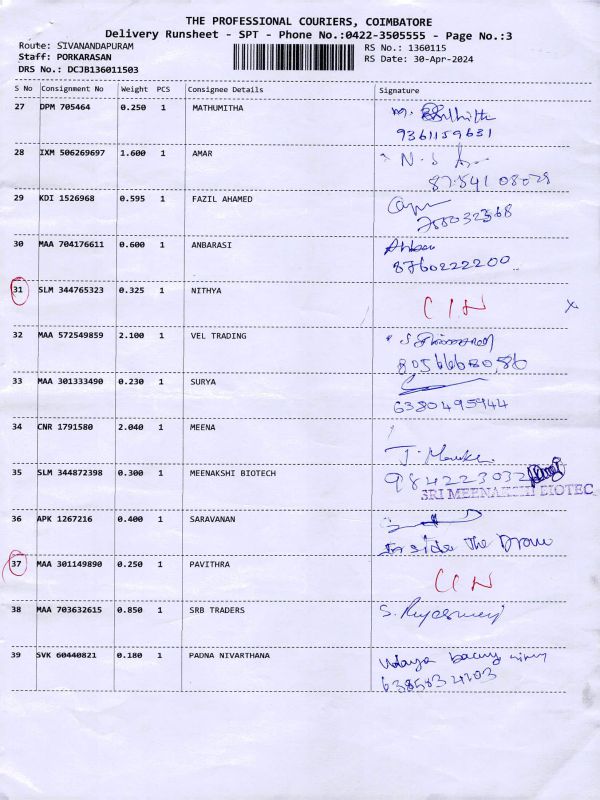 THE PROFESSIONAL COURIERS, COIMBATORE
Delivery Runsheet - SPT - Phone No.:0422-3505555 - Page No.:3
Route: SIVANANDAPURAM RS No.: 1360115
Staff: PORKARASAN RS Date: 30-Apr-2024
DRS No.: DCJB136011503
S No Consignment No Weight PCS Consignee Details Signature
27 DPM 705464 0.250 1 MATHUMITHA
9361159631
28 IXM 506269697 1.600 1 AMAR N. S
87541 08029
29 KDI 1526968 0.595 1 FAZIL AHAMED
30 MAA 704176611 0.600 1 ANBARASI
8760222200
31 SLM 344765323 0.325 1 NITHYA CIN X
32 MAA 572549859 2.100 1 VEL TRADING
33 MAA 301333490 0.230 1 SURYA
6380495944
34 CNR 1791580 2.040 1 MEENA
35 SLM 344872398 0.300 1 MEENAKSHI BIOTECH 984223032
SRI MEENAKSHI BIOTEC
36 APK 1267216 0.400 1 SARAVANAN
Inside The
37 MAA 301149890 0.250 1 PAVITHRA CIN
38 MAA 703632615 0.850 1 SRB TRADERS S.
39 SVK 60440821 0.180 1 PADNA NIVARTHANA Udaya